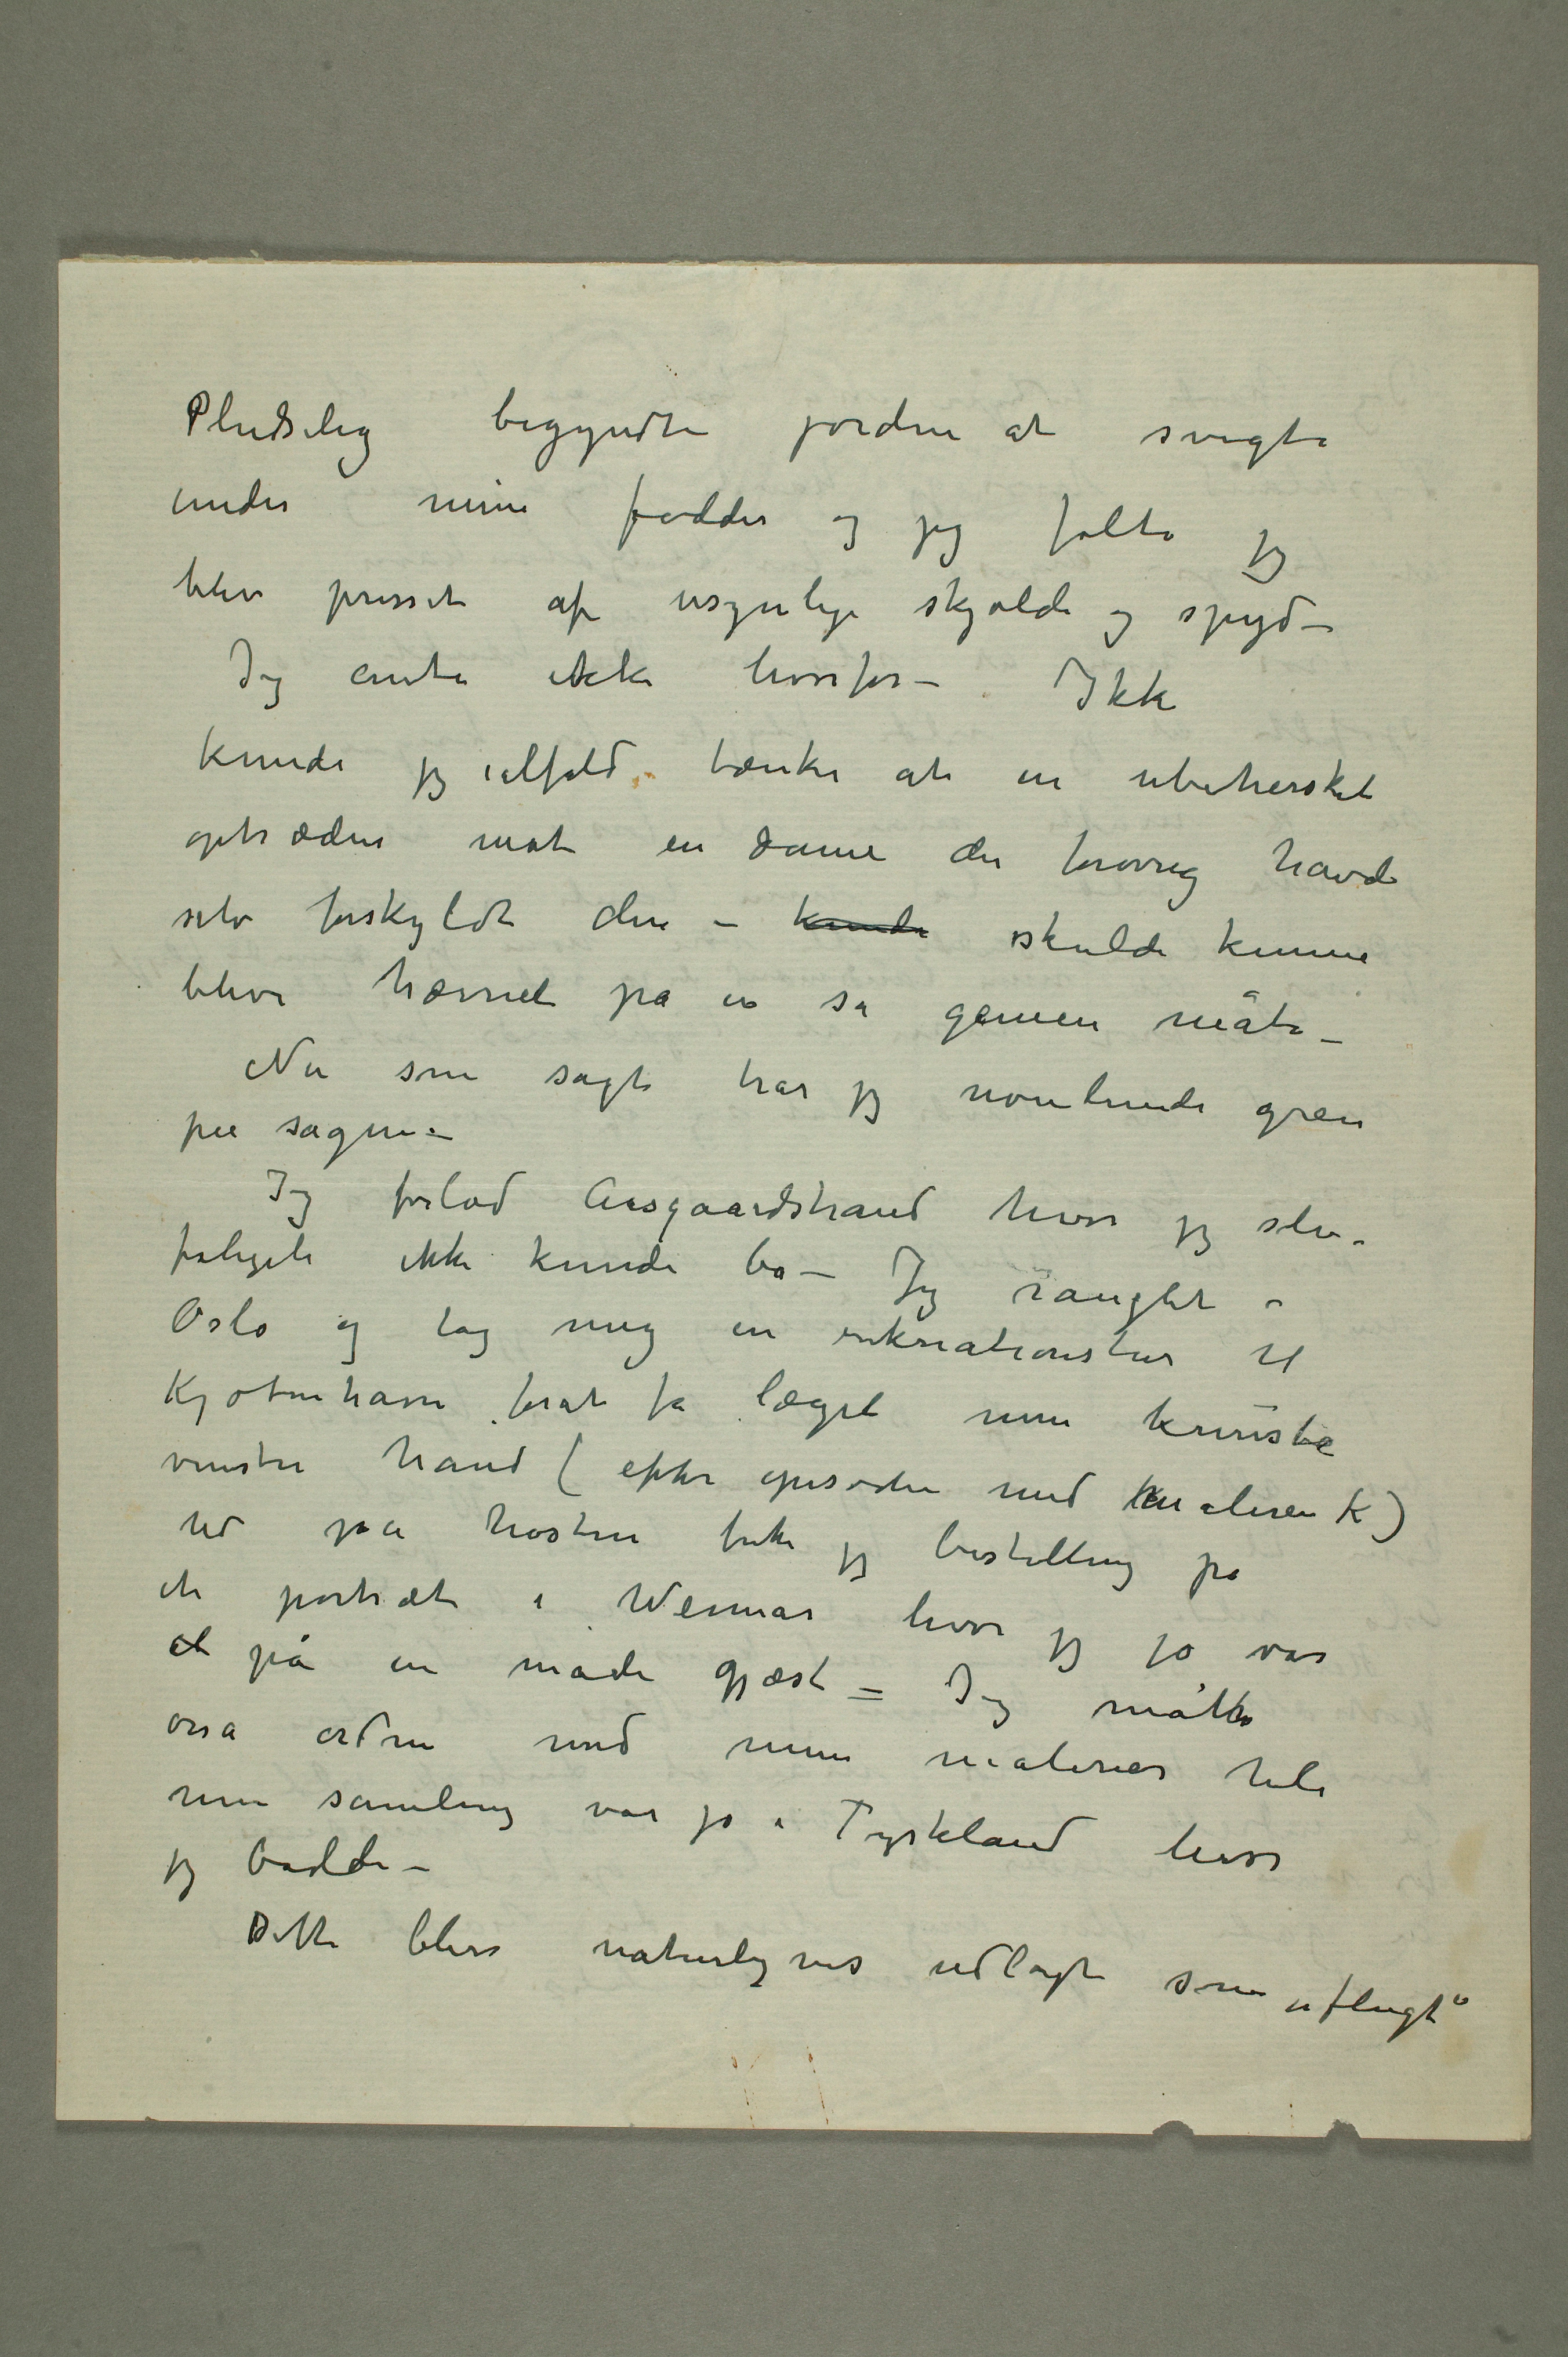 Pludselig begyndte jorden at svigte
under mine fødder og jeg følte jeg
blev presset af usynlige skjolde og spyd –
Jeg ante ikke hvorfor – Ikke
kunde jeg ialfald tænke at en ubehersket
optræden mot en dame der forøvrig havde
selv forskyldt den – kunde skulde kunne
blive hævnet på en så gemen måte –
Nu som sagt har jeg nogenlunde greie
på sagen –
Jeg forlod Aasgaardstrand hvor jeg selv-
følgelig ikke kunde bo – Jeg ranglet i
Oslo og tog mig en rekreationstur til
Kjøbenhavn forat få læget min knuste
venstre hånd (efter episoden med maleren K)
Ud på høsten fik jeg bestilling på
et portræt i Weimar hvor jeg jo var
på en måde gjæst – Jeg måtte
også ordne med mine malerier hele
min samling var jo i Tyskland hvor
jeg bodde –
Dette blev naturligvis udlagt som „flugt“